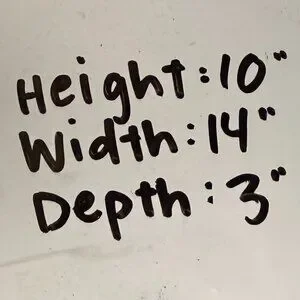 Height: 10"
Width: 14"
Depth: 3"